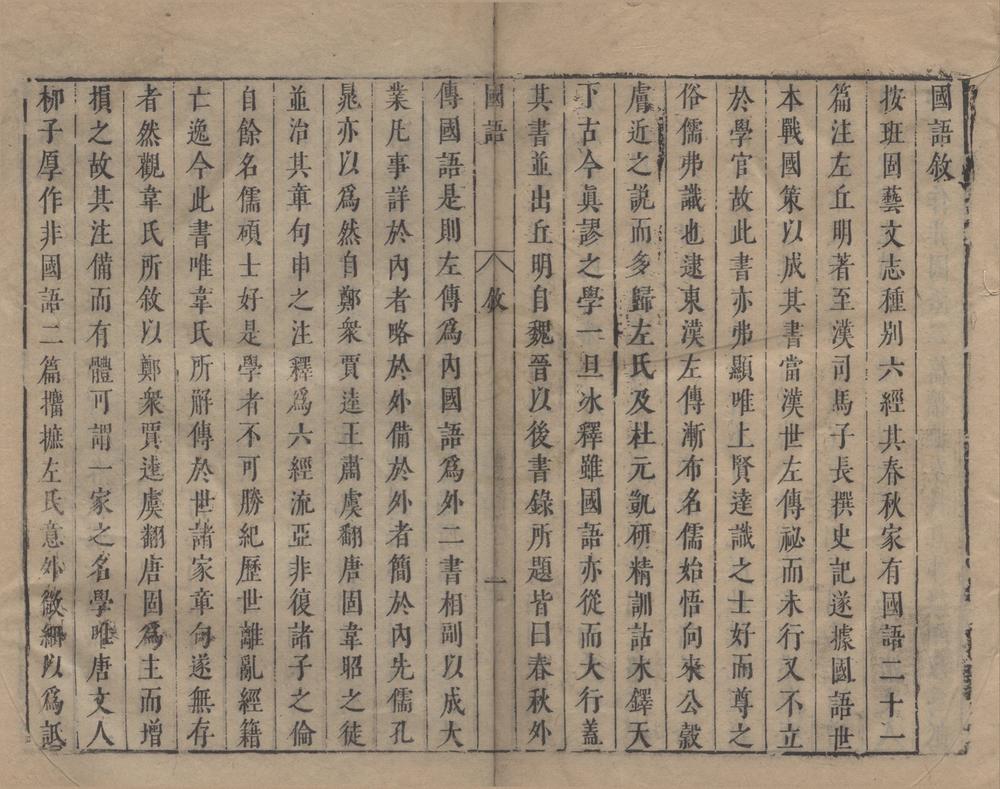 國語敘
按班固藝文志種别六經其春秋家有國語二十一
篇注左丘明著至漢司馬子長撰史記遂據國語世
本戰國策以成其書當漢世左傳祕而未行又不立
於學官故此書亦弗顯唯上賢達識之士好而尊之
俗儒弗識也逮東漢左傳漸布名儒始悟向來公縠
膚近之說而多歸左氏及杜元凱研精訓詁木鐸天
下古今真謬之學一旦氷釋雖國語亦從而大行蓋
其書並出丘明自魏晉以後書錄所題皆曰春秋外
國語 敘 一
傳國語是則左傳爲內國語爲外二書相副以成大
業凡事詳於內者略於外備於外者簡於內先儒孔
晁亦以爲然自鄭衆賈逵王肅虞翻唐固韋昭之徒
並治其章句申之注釋爲六經流亞非復諸子之倫
自餘名儒碩士好是學者不可勝紀歷世離亂經籍
亡逸今此書唯韋氏所解傳於世諸家章句遂無存
者然觀韋氏所敘以鄭衆賈逵虞翻唐固爲主而增
損之故其注備而有體可謂一家之名學唯唐文人
柳子厚作非國語二篇攟摭左氏意外微細以爲詆